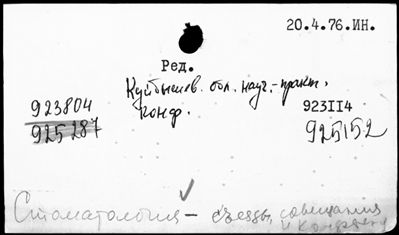 20.4.76.ИН.
Ред.
Куйбышев. обл. науч.-практ.
конф.
923804
923II4
925287
925152
Стоматология – съезды, совещания
и конферен